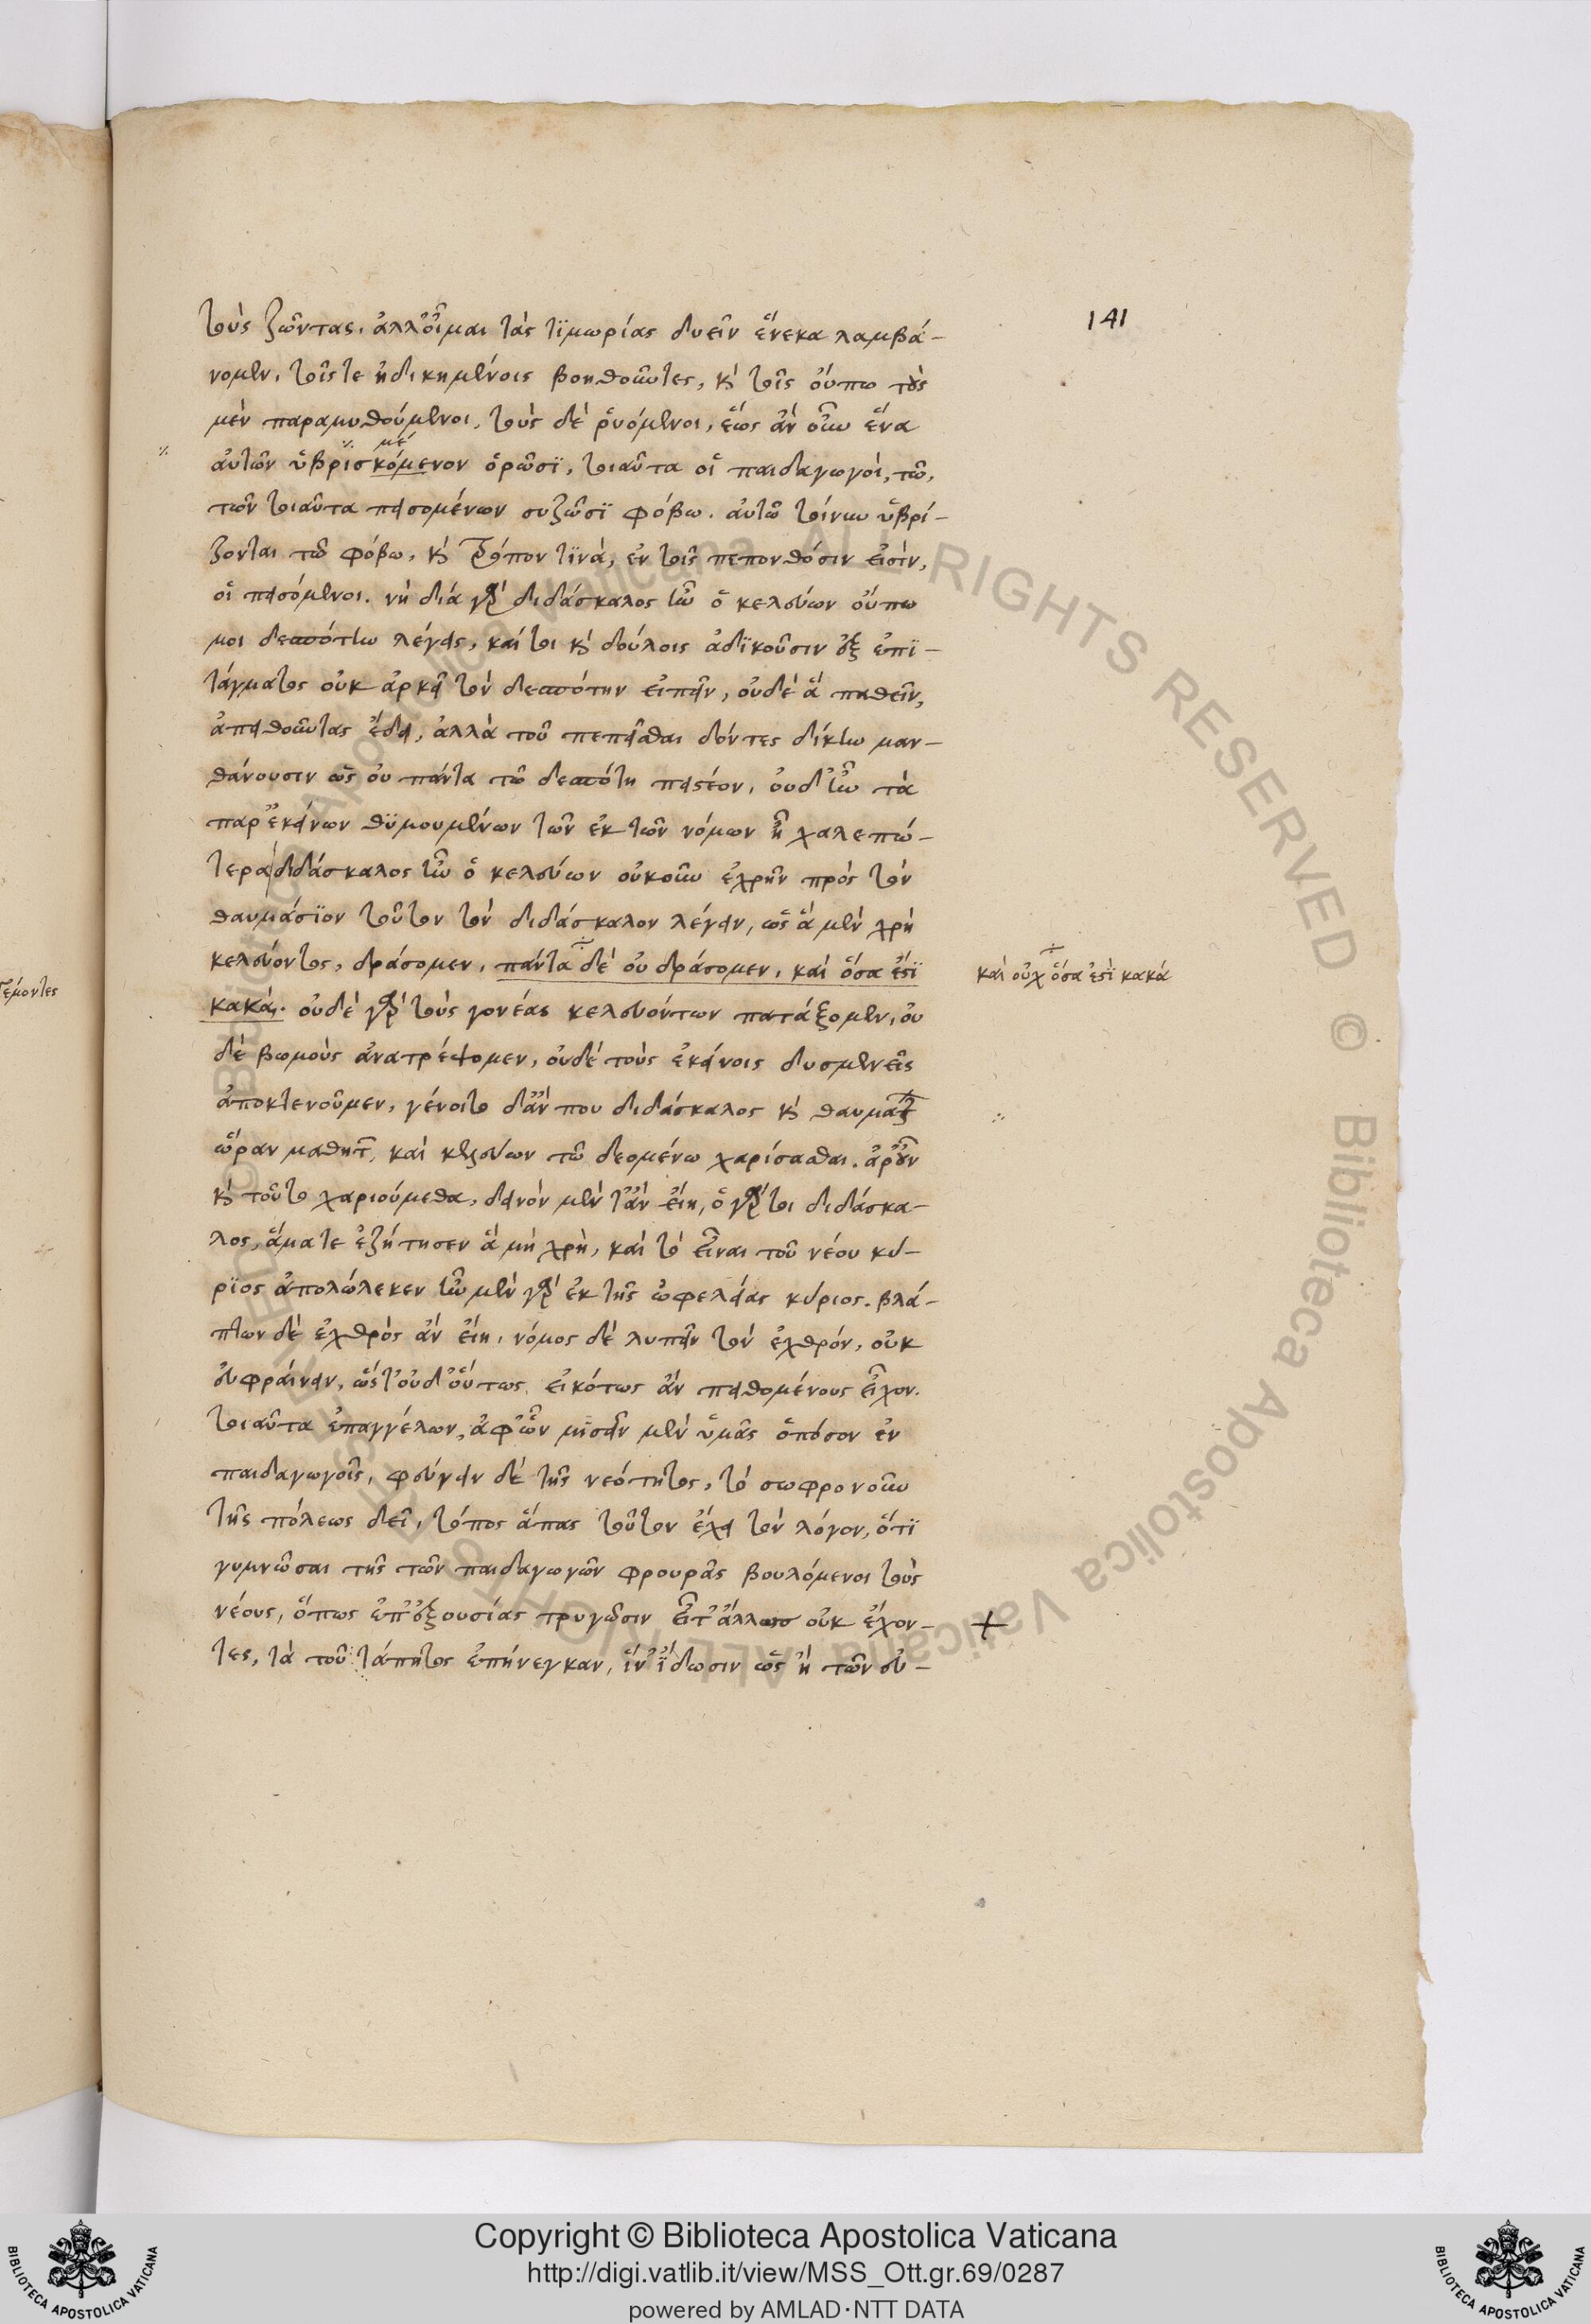 141
τοὺς ζῶντας. ἀλλ' οἶμαι τὰς τϊμωρίας δυεῖν ἕνεκα λαμβά-
νομεν, τοῖς τε ἠδικημένοις βοηθοῦντες, κὶ τοῖς οὔπω τοὺς
μὲν παραμυθούμενοι, τοὺς δὲ ῥυόμενοι, ἕως ἂν οὖν ἕνα
με
αὐτῶν ὑβρισκόμενον ὁρῶσϊ, τοιαῦτα οἱ παιδαγωγοὶ, τῶ,
τῶν τοιαῦτα πεισομένων συζῶσϊ φόβω. αὐτῶ τοίνυν ὑβρί-
ζονται τῶ φόβω, κὶ τρόπον τϊνὰ, ἐν τοῖς πεπονθόσιν εἰσὶν,
οἱ πεισόμενοι. νὴ δία γὰρ διδάσκαλος ἦν ὁ κελεύων οὔπω
μοι δεσπότην λέγεις, καίτοι κὶ δούλοις ἀδϊκοῦσιν ἐξ ἐπϊ-
τάγματος οὐκ ἀρκεῖ τὸν δεσπότην εἰπεῖν, οὐδὲ ἃ παθεῖν,
ἀπειθοῦντας ἔδει, ἀλλὰ τοῦ πεπεῖσθαι δόντες δίκην μαν-
θάνουσιν ὡς οὐ πάντα τῶ δεσπότη πειστέον, οὐδ' ἦν τὰ
παρ' ἐκείνων θϋμουμένων τῶν ἐκ τῶν νόμων ἦ χαλεπώ-
τερα διδάσκαλος ἦν ὁ κελεύων οὐκοῦν ἐχρῆν πρὸς τὸν
θαυμάσϊον τοῦτον τὸν διδάσκαλον λέγειν, ὡς ἃ μὲν χρὴ
κελεύοντος, δράσομεν, πάντα δὲ οὐ δράσομεν, καὶ ὅσα ἐστϊ
καὶ οὐχ ὅσα ἐστὶ κακά
κακά. οὐδὲ γὰρ τοὺς γονέας κελευόντων πατάξομεν, οὐ
δὲ βωμοὺς ἀνατρέψομεν, οὐδὲ τοὺς ἐκείνοις δυσμενεῖς
ἀποκτενοῦμεν, γένοιτο δ' ἄν που διδάσκαλος κὶ
ὥραν μαθητ, καὶ κελεύων τῶ δεομένω χαρίσασθαι. ἆρ' οὖν
κὶ τοῦτο χαριούμεθα, δεινὸν μὲν τἂν εἴη, ὁ γάρ τοι διδάσκα-
λος, ἅμα τε ἐζήτησεν ἃ μὴ χρὴ, καὶ τὸ εἶναι τοῦ νέου κύ-
ρϊος ἀπολώλεκεν ἦν μὲν γὰρ ἐκ τῆς ὠφελείας κύριος. βλά-
πτων δὲ ἐχθρὸς ἂν εἴη, νόμος δὲ λυπεῖν τὸν ἐχθρόν, οὐκ
εὐφραίνειν, ὥστ' οὐδ' οὕτως εἰκότως ἂν πειθομένους εἶχον.
τοιαῦτα ἐπαγγέλων, ἀφ' ὧν μϊσεῖν μὲν ὑμᾶς ὁπόσον ἐν
παιδαγωγοῖς, φεύγειν δὲ τῆς νεότητος, τὸ σωφρονοῦν
τῆς πόλεως δεῖ, τόπος ἅπας τοῦτον ἔχει τὸν λόγον, ὅτϊ
γυμνῶσαι τῆς τῶν παιδαγωγῶν φρουρᾶς βουλόμενοι τοὺς
νέους, ὅπως ἐπ' ἐξουσίας τρυγῶσιν εἶτ' ἄλλως οὐκ ἔχον-
τες, τὰ τοῦ τάπητος ἐπήνεγκαν, ἵν' ἴδωσιν ὡς ἡ τῶν εὐ-
Copyright © Biblioteca Apostolica Vaticana
http://digi.vatlib.it/view/MSS_Ott.gr.69/0287
powered by AMLAD·NTT DATA